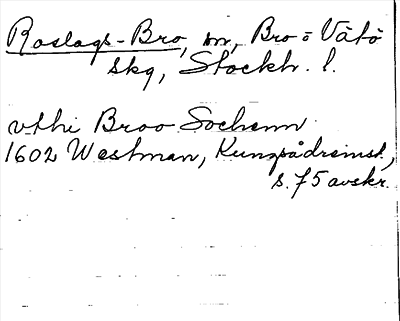 Roslags-Bro, sn, Bro o Vätö
skg, Stockh. l.
vthi Broo Sochenn
1602 Westman, Kungsådreinst.,
s. 75 avskr.